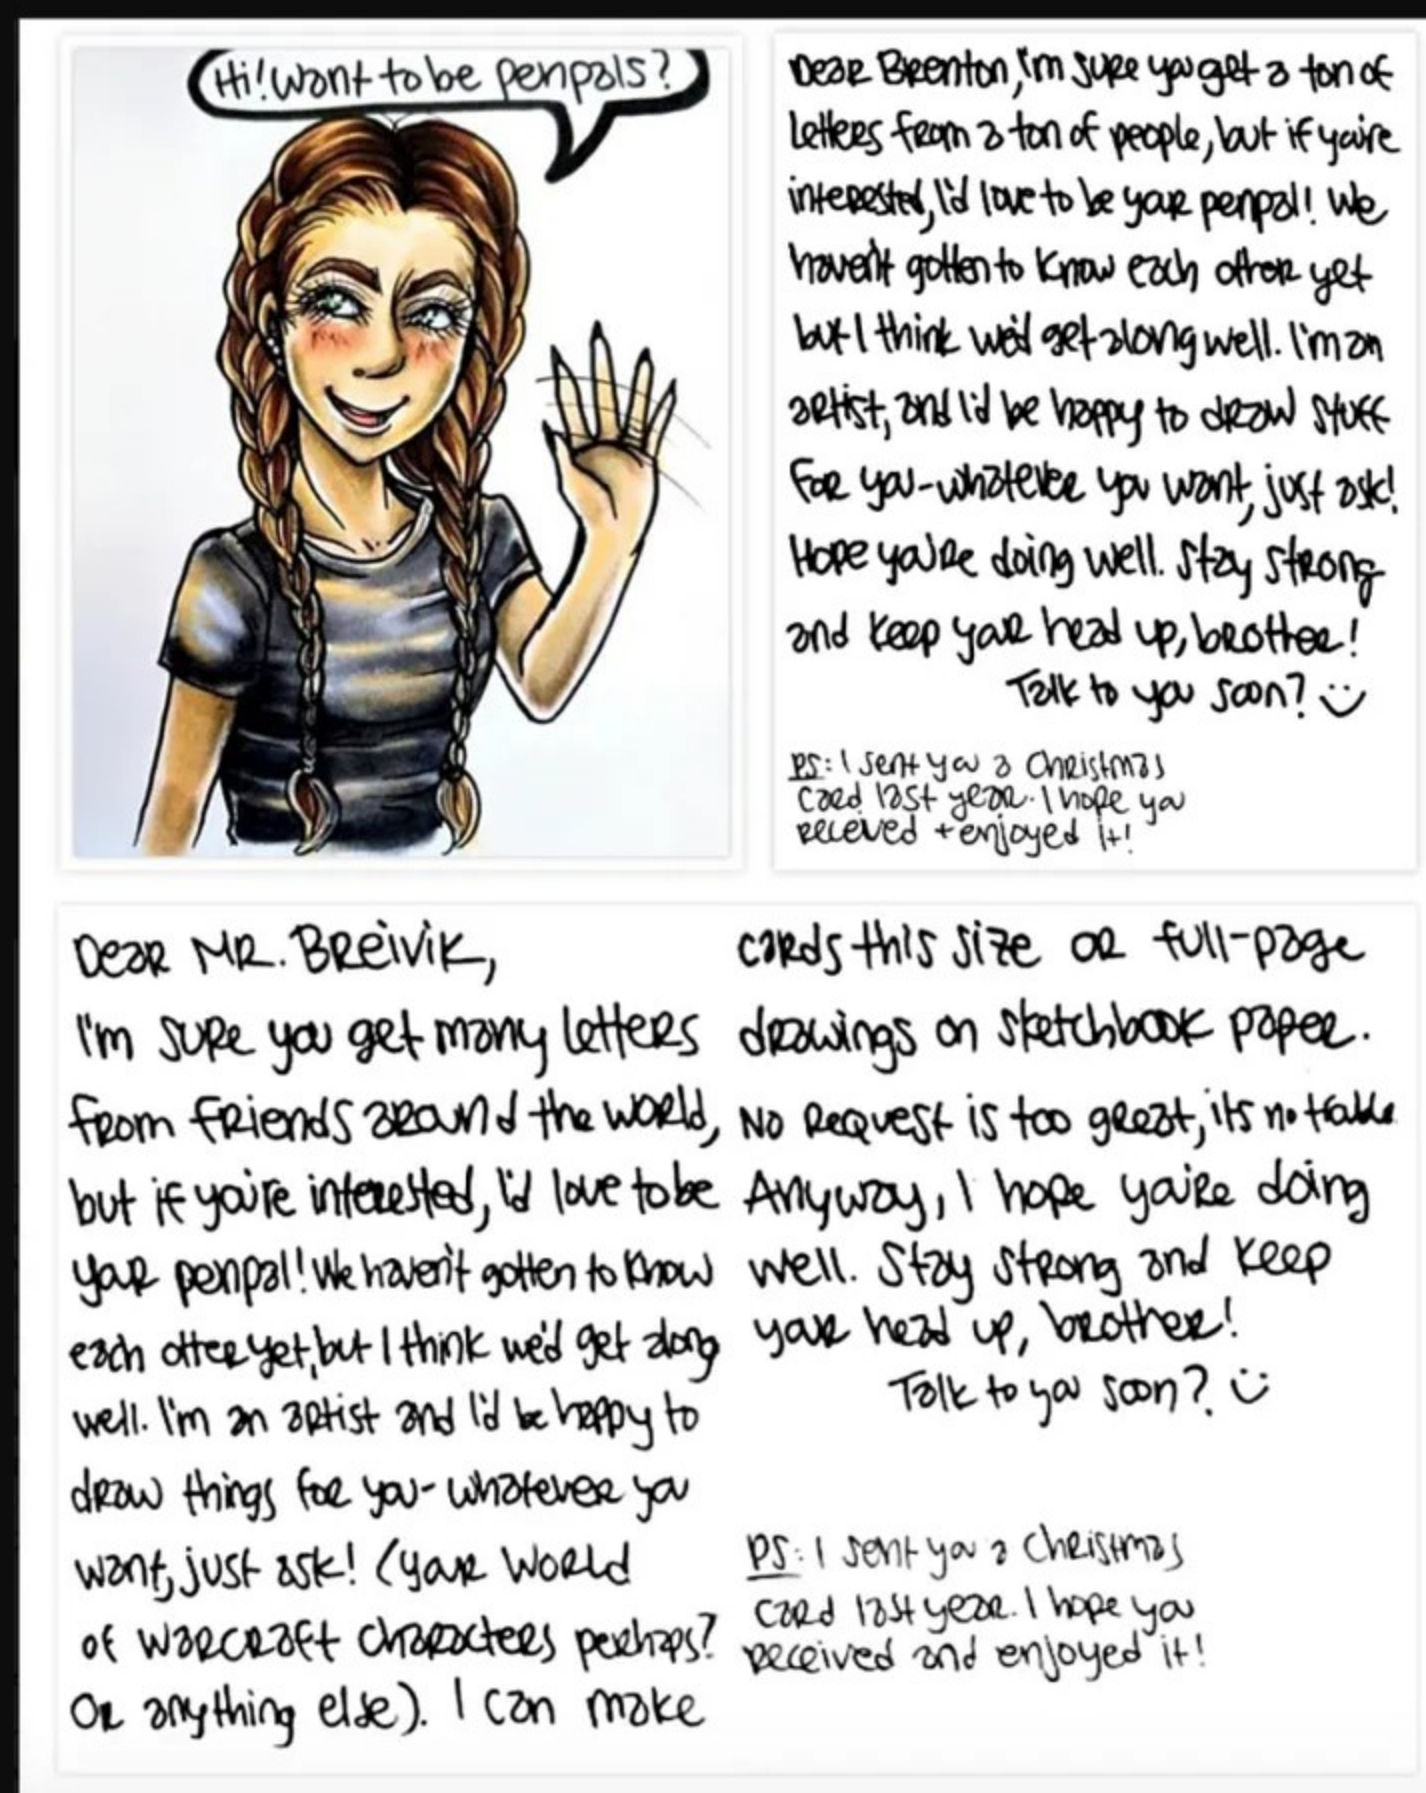 Hi! Want to be penpals?
Dear Brenton, I'm sure you get a ton of
letters from a ton of people, but if you're
interested, I'd love to be your penpal! We
haven't gotten to know each other yet
but I think we'd get along well. I'm an
artist, and I'd be happy to draw stuff
for you-whatever you want, just ask!
Hope you're doing well. Stay strong
and keep your head up, brother!
Talk to you soon? :)
PS: I sent you a Christmas
card last year. I hope you
received + enjoyed it!
Dear Mr. Breivik,
I'm sure you get many letters
from friends around the world,
but if you're interested, I'd love to be
your penpal! We haven't gotten to know
each other yet, but I think we'd get along
well. I'm an artist and I'd be happy to
draw things for you- whatever you
want, just ask! (your World
of Warcraft characters perhaps?
Or anything else). I can make
cards this size or full-page
drawings on sketchbook paper.
No request is too great, it's no trouble
Anyway, I hope you're doing
well. Stay strong and keep
your head up, brother!
Talk to you soon? :)
PS: I sent you a Christmas
card last year. I hope you
received and enjoyed it!